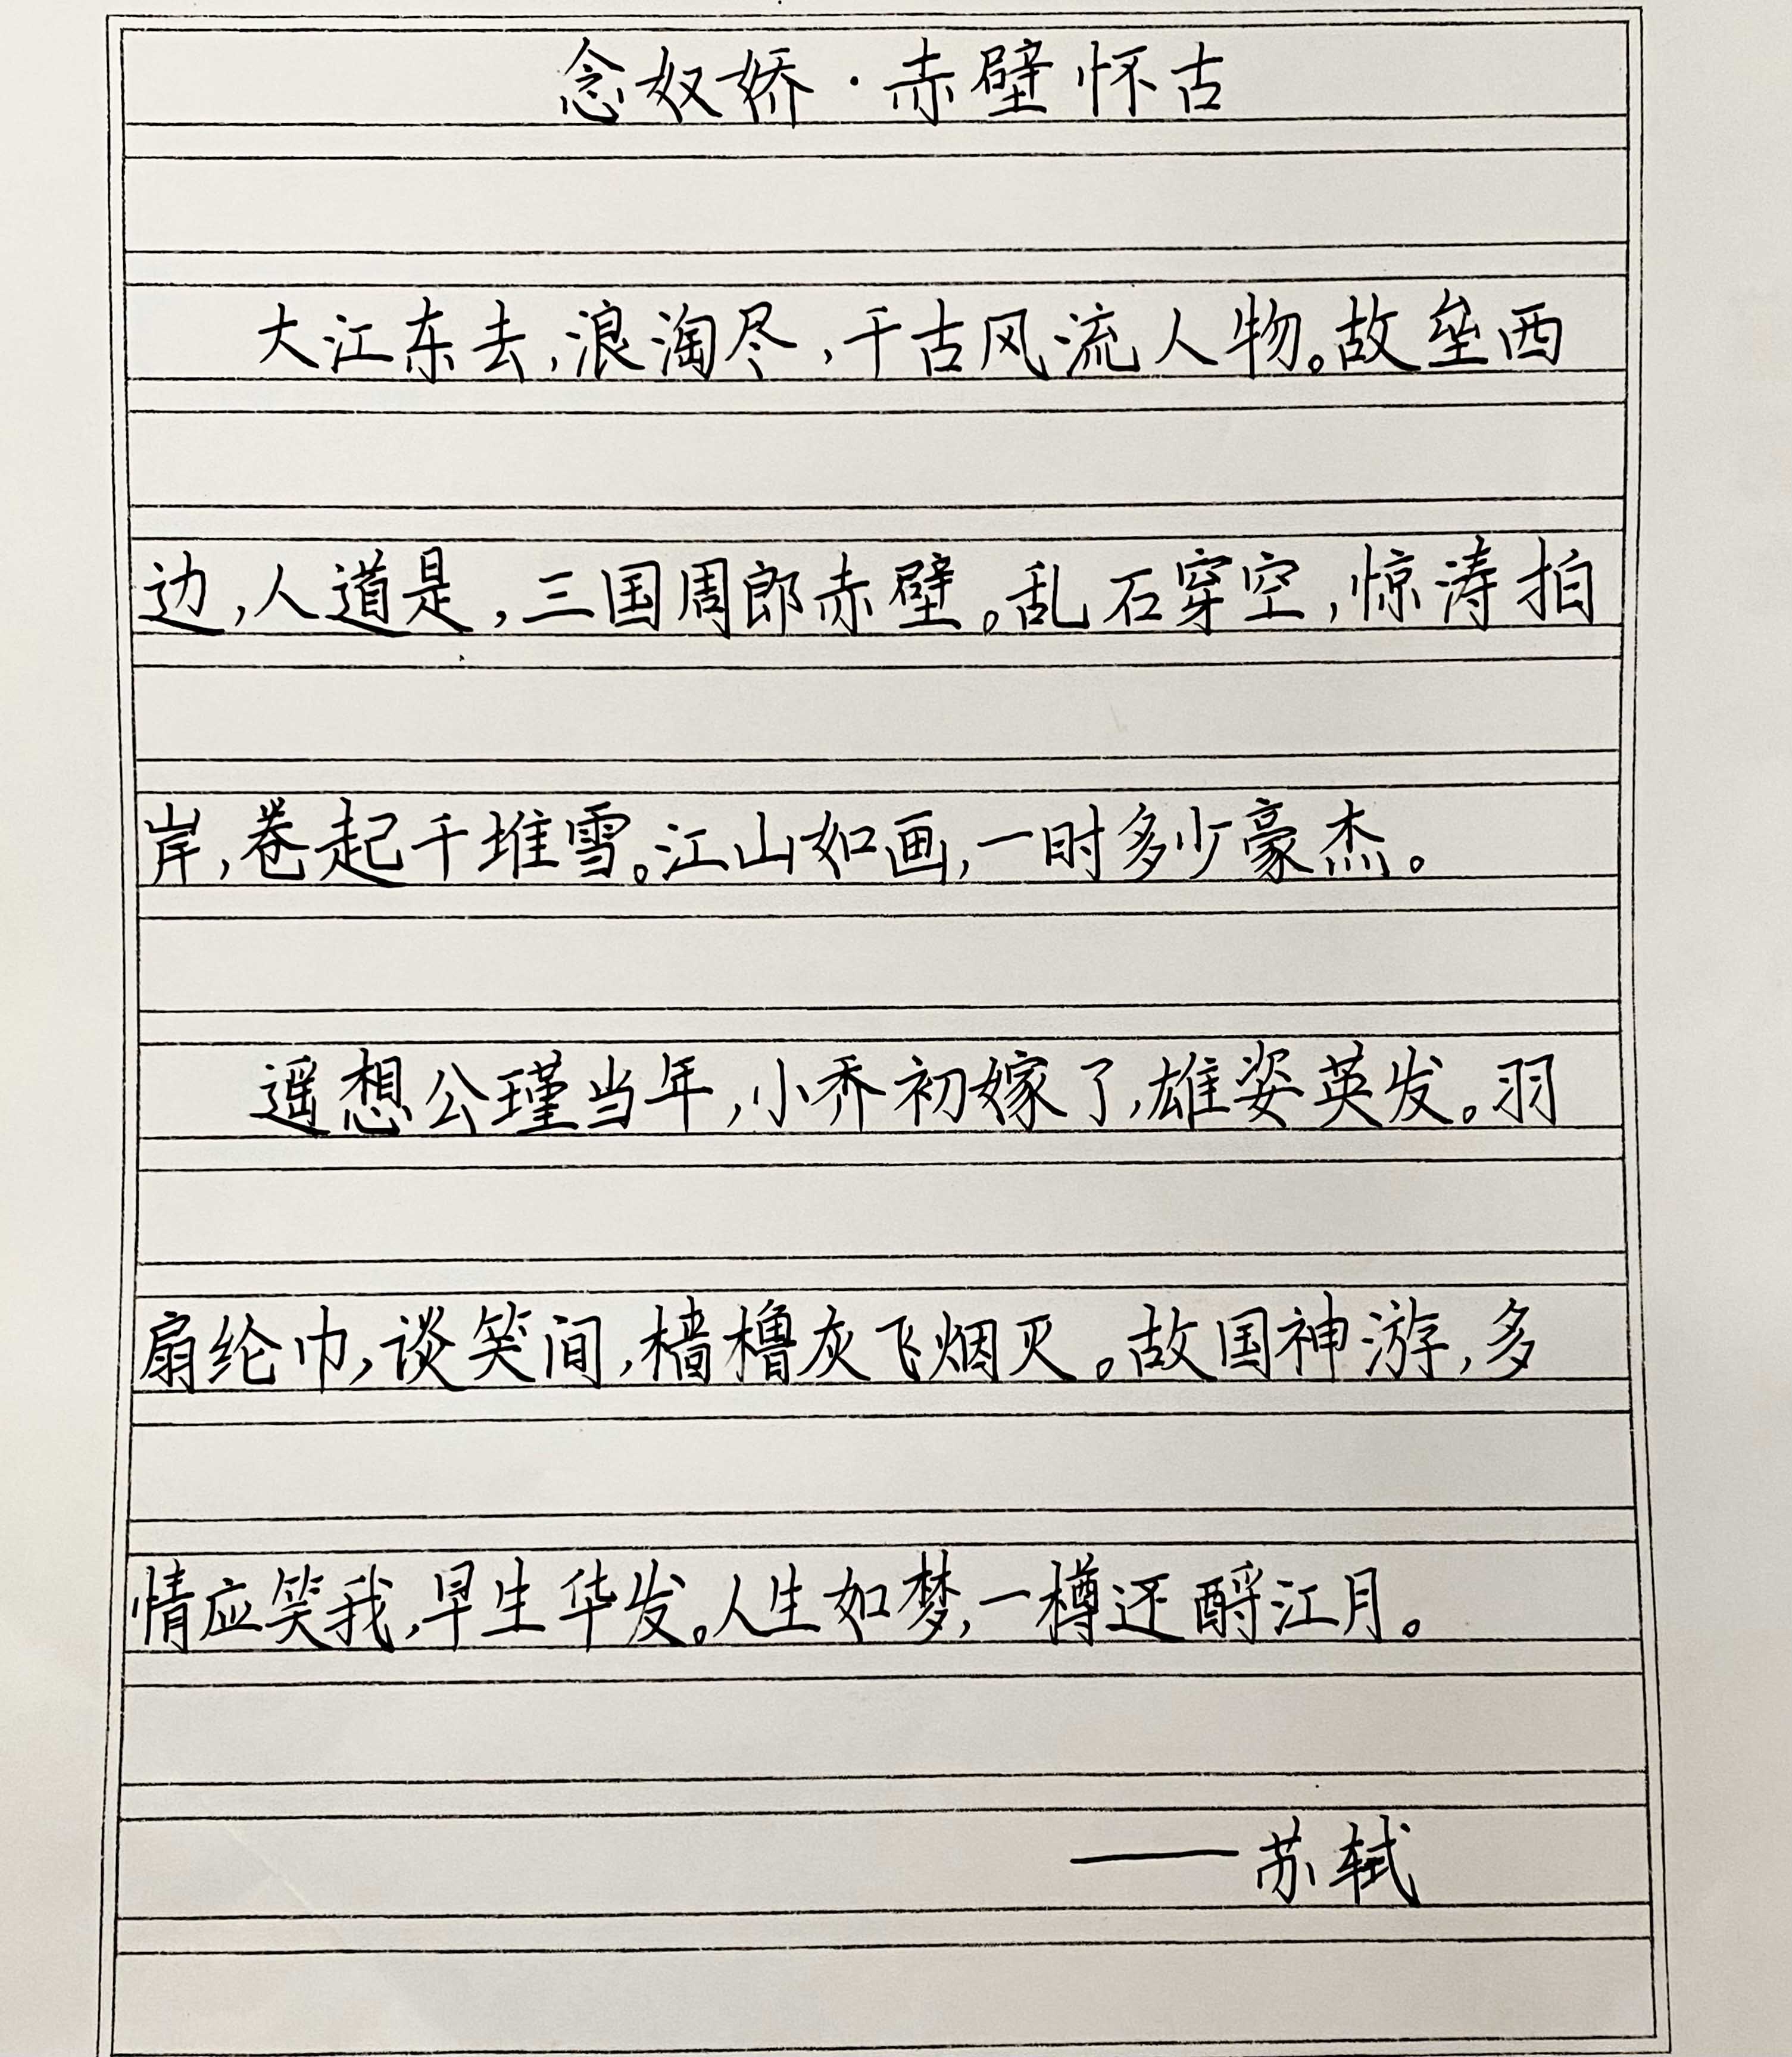 念奴娇·赤壁怀古
大江东去,浪淘尽,千古风流人物。故垒西
边,人道是,三国周郎赤壁。乱石穿空,惊涛拍
岸,卷起千堆雪。江山如画,一时多少豪杰。
遥想公瑾当年,小乔初嫁了,雄姿英发。羽
扇纶巾,谈笑间,樯橹灰飞烟灭。故国神游,多
情应笑我,早生华发。人生如梦,一樽还酹江月。
——苏轼